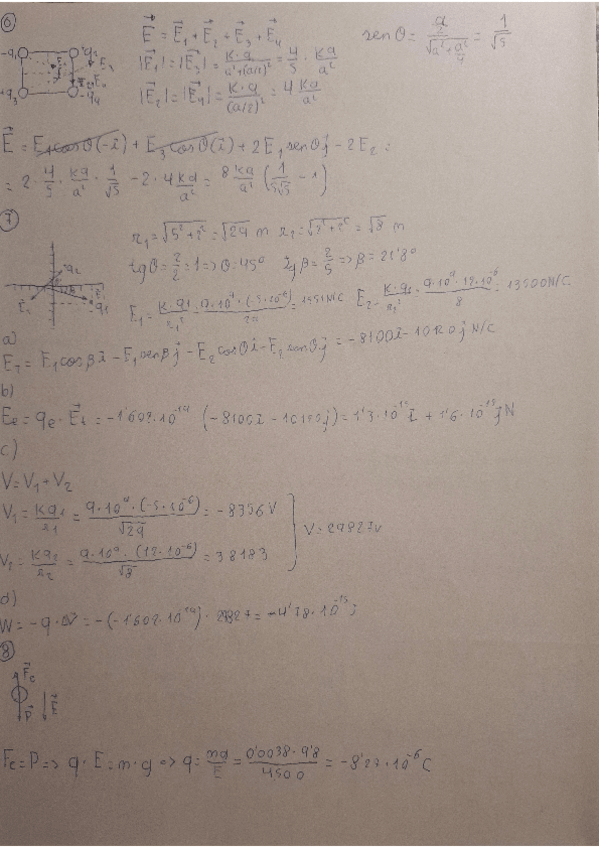 6
-q₁ q₂
+q₃ -q₄
E⃗ = E⃗₁ + E⃗₂ + E⃗₃ + E⃗₄
|E⃗₁| = |E⃗₃| = K·q / (a²+(a/2)²) = 4/5 · Kq/a²
|E⃗₂| = |E⃗₄| = K·q / (a/2)² = 4 Kq/a²
sen θ = (a/2) / √(a²+a²/4) = 1/√5
E⃗ = E₁cosθ(-i⃗) + E₃cosθ(i⃗) + 2E₁senθj⃗ - 2E₂ =
= 2 · 4/5 · Kq/a² · 1/√5 - 2 · 4Kq/a² = 8Kq/a² (1/5√5 - 1)
7
r₁ = √(5²+2²) = √29 m r₂ = √(2²+2²) = √8 m
tgθ = 2/2 = 1 => θ = 45° tgβ = 2/5 => β = 21'8°
E₁ = K·q₁/r₁² = 9·10⁹·(-5·10⁻⁶)/29 = 1551 N/C E₂ = K·q₂/r₂² = 9·10⁹·12·10⁻⁶/8 = 13500 N/C
a)
E_T = E₁cosβi⃗ - E₁senβj⃗ - E₂cosθi⃗ - E₂senθj⃗ = -8100i⃗ - 10120j⃗ N/C
b)
Fe = qe · E⃗t = -1'602·10⁻¹⁹ (-8100i⃗ - 10120j⃗) = 1'3·10⁻¹⁵i⃗ + 1'6·10⁻¹⁵j⃗ N
c)
V = V₁ + V₂
V₁ = Kq₁/r₁ = 9·10⁹·(-5·10⁻⁶)/√29 = -8356 V
V = 29827 V
V₂ = Kq₂/r₂ = 9·10⁹·(12·10⁻⁶)/√8 = 38183
d)
W = -q·ΔV = -(-1'602·10⁻¹⁹)· = -4'78·10⁻¹⁵ J
8
F⃗e
P⃗ E⃗
Fe = P => q·E = m·g => q = mg/E = 0'0038·9'8/4500 = -8'27·10⁻⁶ C